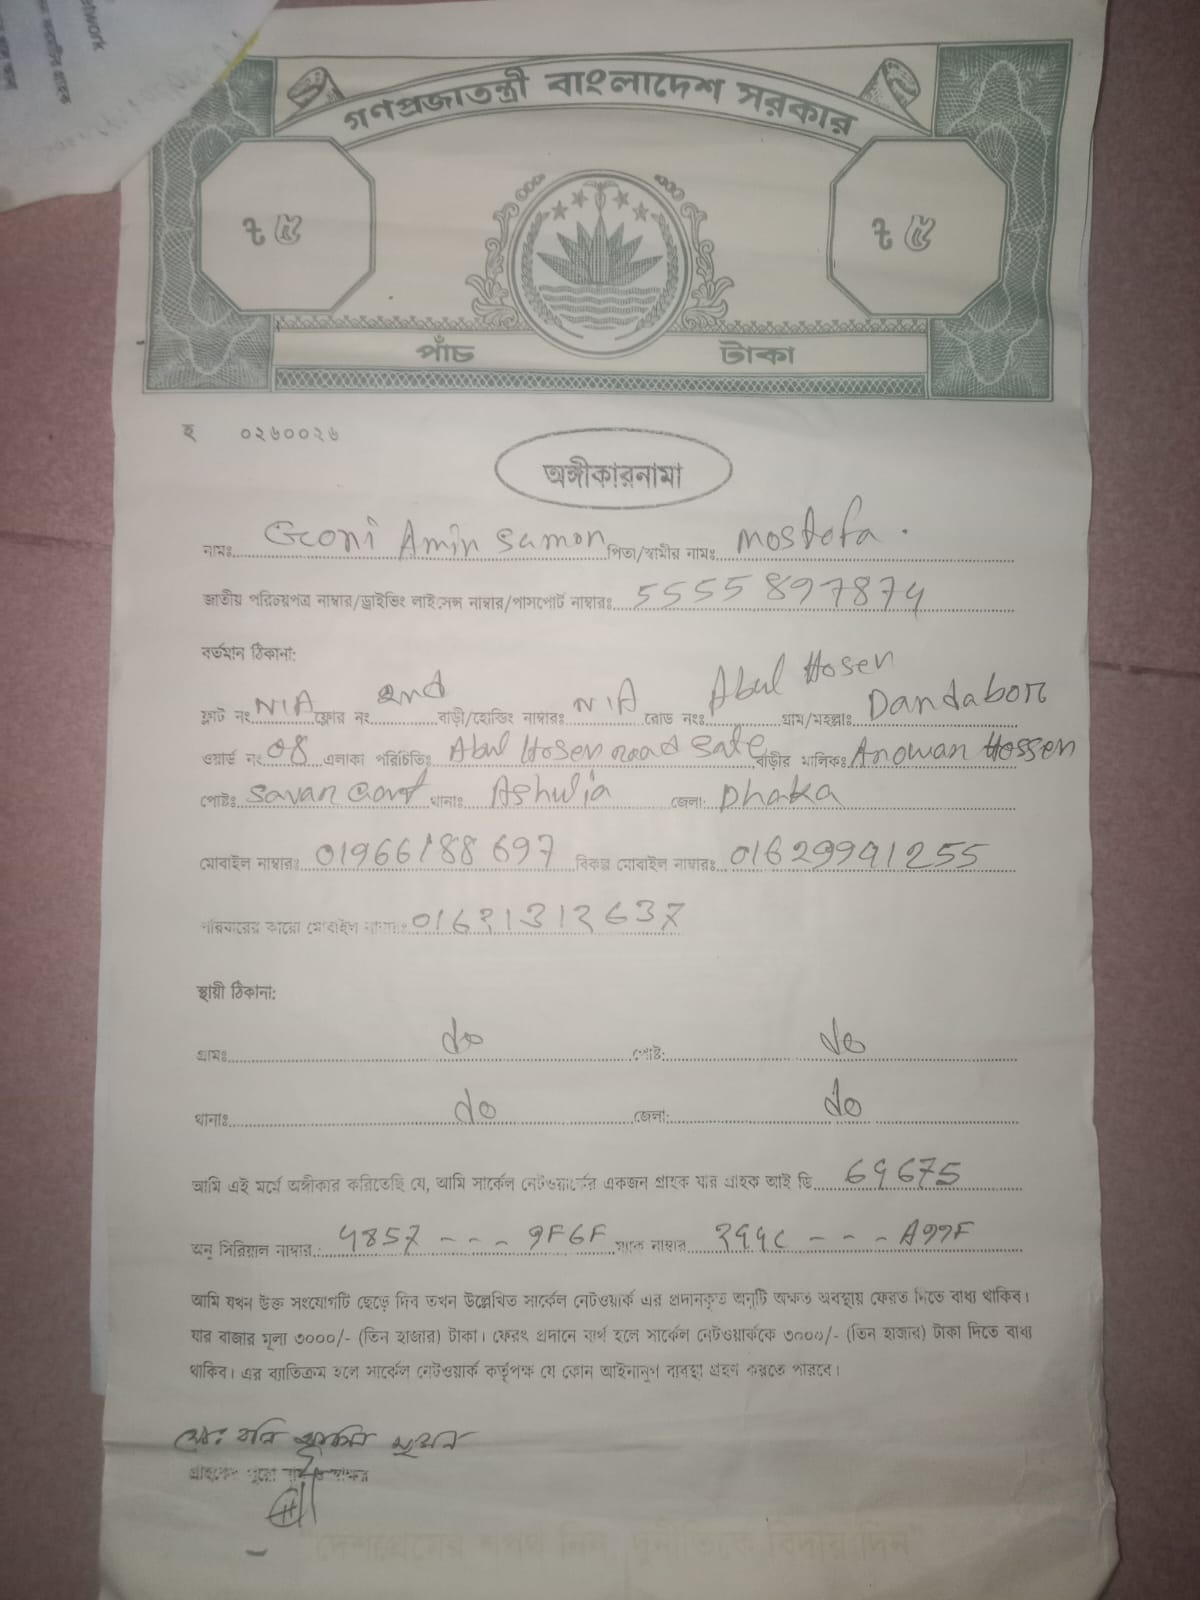 etwork
গণপ্রজাতন্ত্রী বাংলাদেশ সরকার
৳ ৫ ৳ ৫
পাঁচ টাকা
হ ০২৬০০২৬
অঙ্গীকারনামা
নামঃ Goni Amin Sumon পিতা/স্বামীর নামঃ Mostofa.
জাতীয় পরিচয়পত্র নাম্বার/ড্রাইভিং লাইসেন্স নাম্বার/পাসপোর্ট নাম্বারঃ 5555897874
বর্তমান ঠিকানা:
ফ্লাট নং N/A ফ্লোর নং 2nd বাড়ী/হোল্ডিং নাম্বারঃ N/A রোড নংঃ Abul Hosen গ্রাম/মহল্লাঃ Dandabor
ওয়ার্ড নং 08 এলাকা পরিচিতিঃ Abul Hosen road বাড়ীর মালিকঃ Anowar Hossen
পোষ্টঃ Savar Cant থানাঃ Ashulia জেলা: Dhaka
মোবাইল নাম্বারঃ 01966188697 বিকল্প মোবাইল নাম্বারঃ 01629991255
পরিবারের কারো মোবাইল নাম্বারঃ 01621312637
স্থায়ী ঠিকানা:
গ্রামঃ do পোষ্ট: do
থানাঃ do জেলা: do
আমি এই মর্মে অঙ্গীকার করিতেছি যে, আমি সার্কেল নেটওয়ার্কের একজন গ্রাহক যার গ্রাহক আই ডি 69675
অনু সিরিয়াল নাম্বার: 4857 --- 9F6F ম্যাক নাম্বার --- A99F
আমি যখন উক্ত সংযোগটি ছেড়ে দিব তখন উল্লেখিত সার্কেল নেটওয়ার্ক এর প্রদানকৃত অনুটি অক্ষত অবস্থায় ফেরত দিতে বাধ্য থাকিব।
যার বাজার মূল্য ৩০০০/- (তিন হাজার) টাকা। ফেরৎ প্রদানে ব্যর্থ হলে সার্কেল নেটওয়ার্ককে ৩০০০/- (তিন হাজার) টাকা দিতে বাধ্য
থাকিব। এর ব্যতিক্রম হলে সার্কেল নেটওয়ার্ক কর্তৃপক্ষ যে কোন আইনানুগ ব্যবস্থা গ্রহণ করতে পারবে।
মোঃ গনি আমিন সুমন
গ্রাহকের পুরো নাম ও স্বাক্ষর
"দেশপ্রেমের শপথ নিন, দুর্নীতিকে বিদায় দিন"